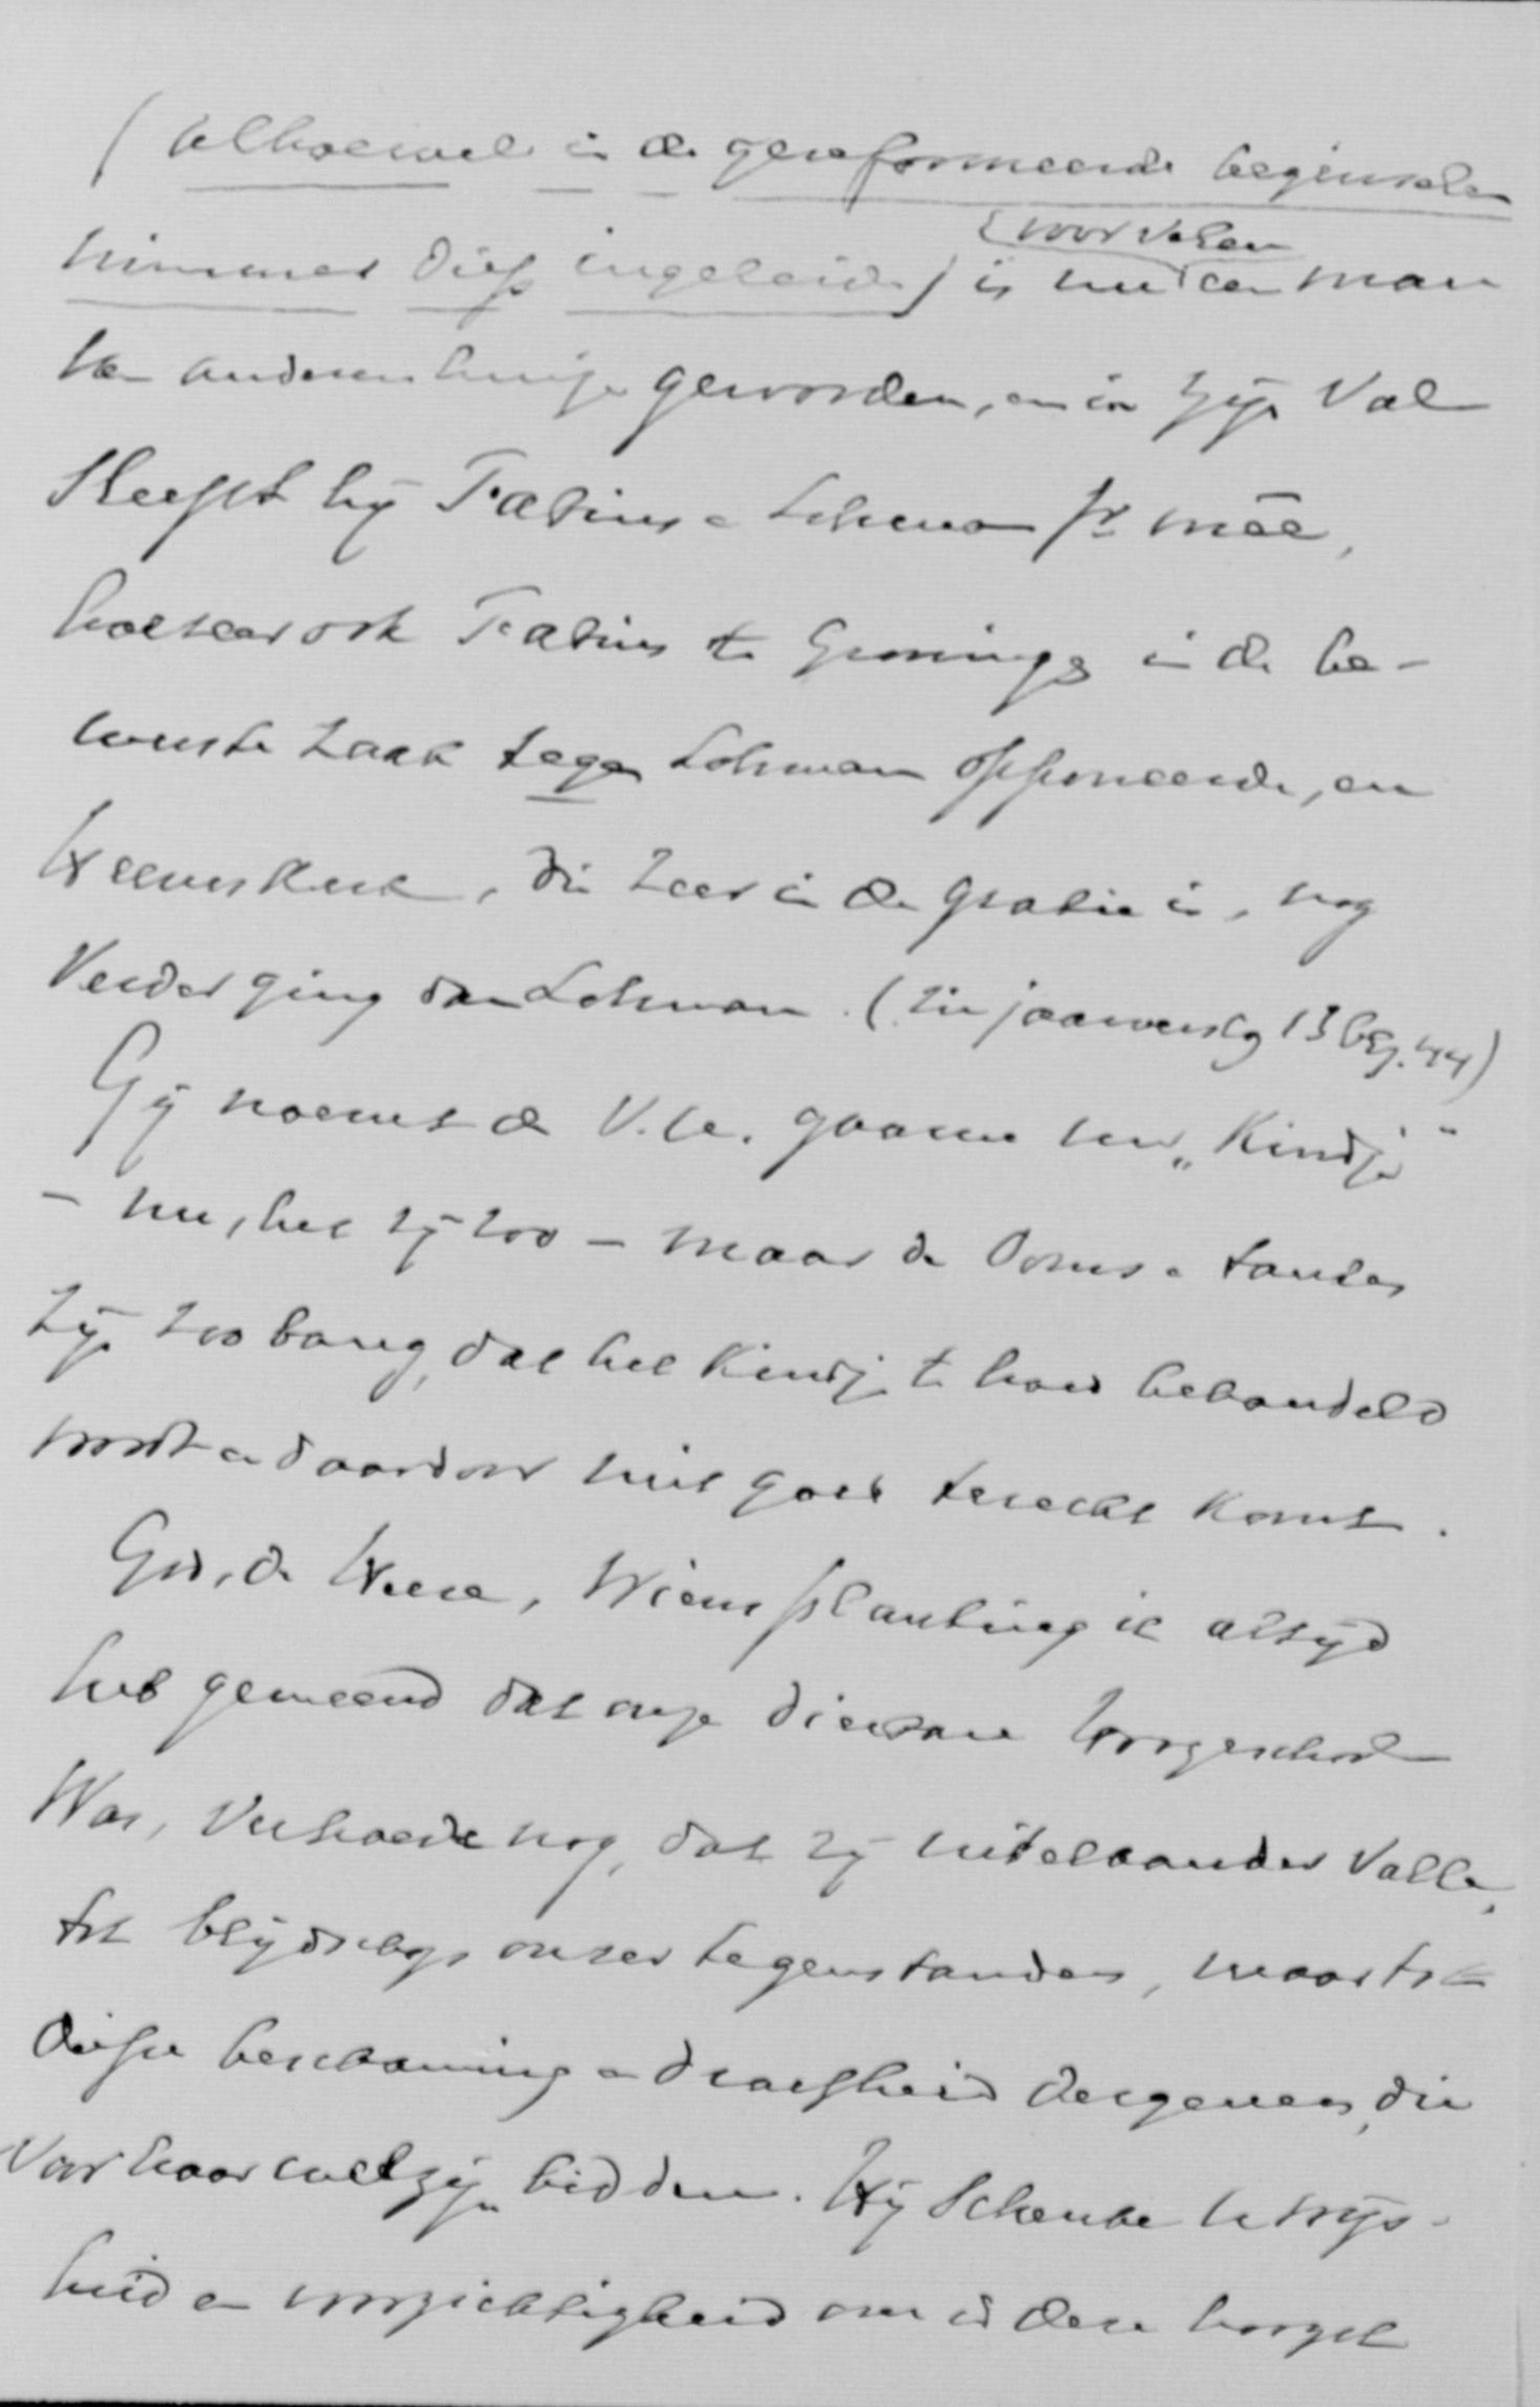 (alhoewel in de gereformeerde beginselen
nimmer diep ingeleid) is nu voor velen een man
ten anderen geworden, en in zijn val
sleept hij Fabius & Lohman Jr meê,
hoezeer ook Fabius te Groningen in de be-
wuste zaak tegen Lohman opponeerde, en
Heemskerk, die zeer in de gratie is, nog
verder ging dan Lohman. (zie jaarverslag 13 blz. 44)
Gij noemt de V.U. gaarne uw „Kindje"
- nu, het zij zoo - maar de Ooms & tantes
zijn zoo bang, dat het Kindje te hard behandeld
wordt en daardoor niet goed terecht komt.
God, de Heere, Wiens planting ik altijd
heb gemeend dat onze dierbare hoogeschool
was, verhoede nog, dat zij uit elkander valle,
tot blijdschap onzer tegenstanders, maar tot
diepe beschaming en droefheid dergenen, die
voor haar welzijn bidden. Hij schenke U wijs-
heid en voorzichtigheid om in deze hoogst